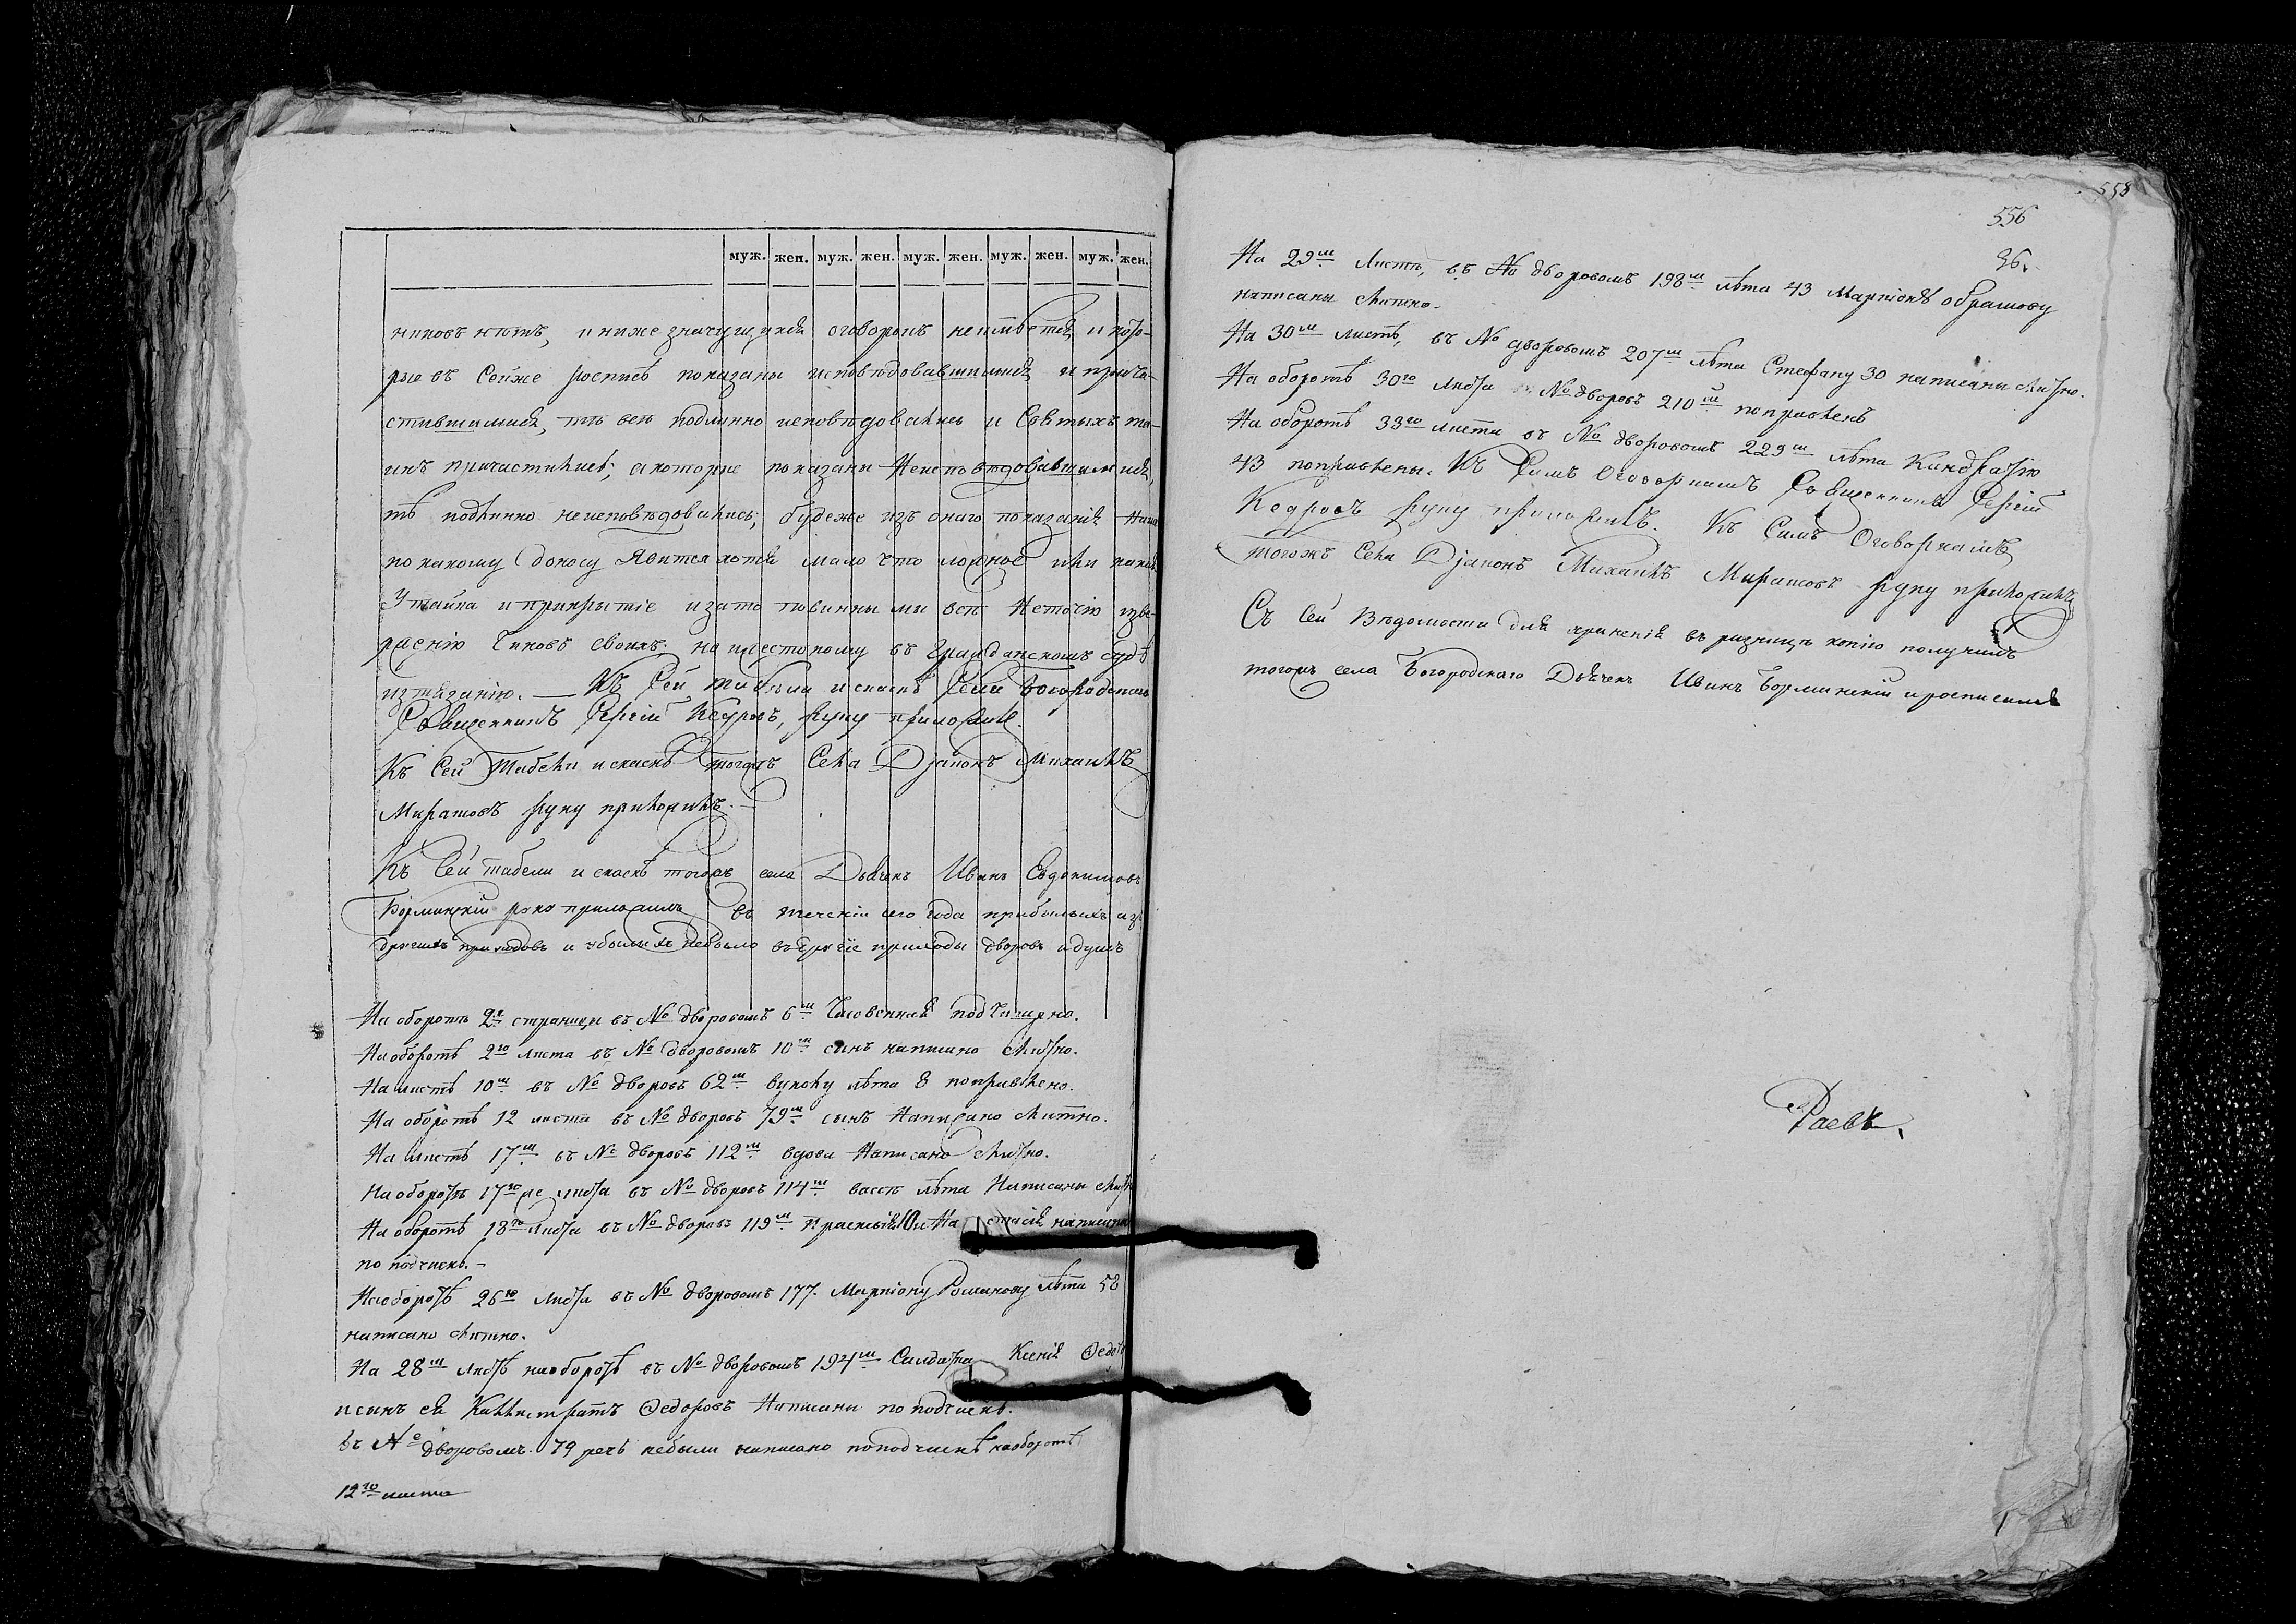 муж. жен. муж. жен. муж. жен. муж. жен. муж. жен.
никовъ нѣтъ, и ниже значущихся оговоровъ неимѣется, и кото-
рые въ Сейже росписѣ показаны исповѣдовавшимися и прича-
стившимися, тѣ всѣ подлинно исповѣдовались и Святыхъ та-
инъ причастились; а которые показаны Неисповѣдовавшимися,
тѣ подлинно неисповѣдовались; будеже изъ онаго показанія
по какому доносу Явится хотя мало что ложное или какая
Утайка и прикрытіе и зато повинны мы всѣ Неточію извер-
жению Чиновъ своихъ. но и жестокому въ Гражданскомъ судѣ
изтязанію. — Къ Сей табели и скаскѣ Села Богородскаго
Священникъ Сергій Кедровъ, руку приложилъ.
Къ Сей Табели и скаскѣ тогожъ Села Діаконъ Михаилъ
Муратовъ руку приложилъ.
Къ Сей табели и скаскѣ тогожъ села Дьячекъ Иванъ Евдокимовъ
Борминскій руку приложилъ въ теченіи сего года прибылыхъ изъ
другихъ приходовъ и убылыхъ небыло въ другіе приходы дворовъ и душъ
На оборотѣ 2й страницы въ № дворовомъ 6м подчищено.
На оборотѣ 2го листа въ № дворовомъ 10м сынъ написано чисто.
На листѣ 10м въ № дворов 62м внуку лѣта 8 поправлено.
На оборотѣ 12 листа въ № дворов 79м сынъ Написано чистно.
На листѣ 17м въ № дворов 112м вдова Написано чисто.
На оборотѣ 17го листа въ № дворов 114м лѣта Написаны
На оборотѣ 18го листа въ № дворов 119м написаны
по подчисткѣ.–
На оборотѣ 26го листа въ № дворовомъ 177. Маркіону Романову лѣта 58
написано чистно.
На 28м листѣ на оборотѣ въ № дворовомъ 194м Салдатка Ксенія
и сынъ ея Каллистратъ Федоровъ Написаны по подчискѣ.
въ № дворовомъ. 79 речь небыли написано по подчискѣ на оборотѣ
12го листа
558
556
36.
На 29м Листѣ, въ № дворовомъ 198м лѣта 43 Маркіону Абрамову
написаны чистно.
На 30м листѣ, въ № дворовомъ 207м лѣта Стефану 30 написаны чисто.
На оборотѣ 30го листа № дворовъ 210й поправленъ
На оборотѣ 33го листа въ № дворовомъ 229м лѣта Кандратію
43 поправлены. Къ Симъ Оговоркамъ Священникъ Сергій
Кедровъ руку приложилъ. Къ Симъ Оговоркамъ
тогожъ Села Діаконъ Михаилъ Муратовъ руку приложилъ
Съ Сей Вѣдомости для храненія въ ризницѣ копію получилъ
тогожъ села Богородскаго Дьячекъ Иванъ Борминскій и росписался
Раевъ.